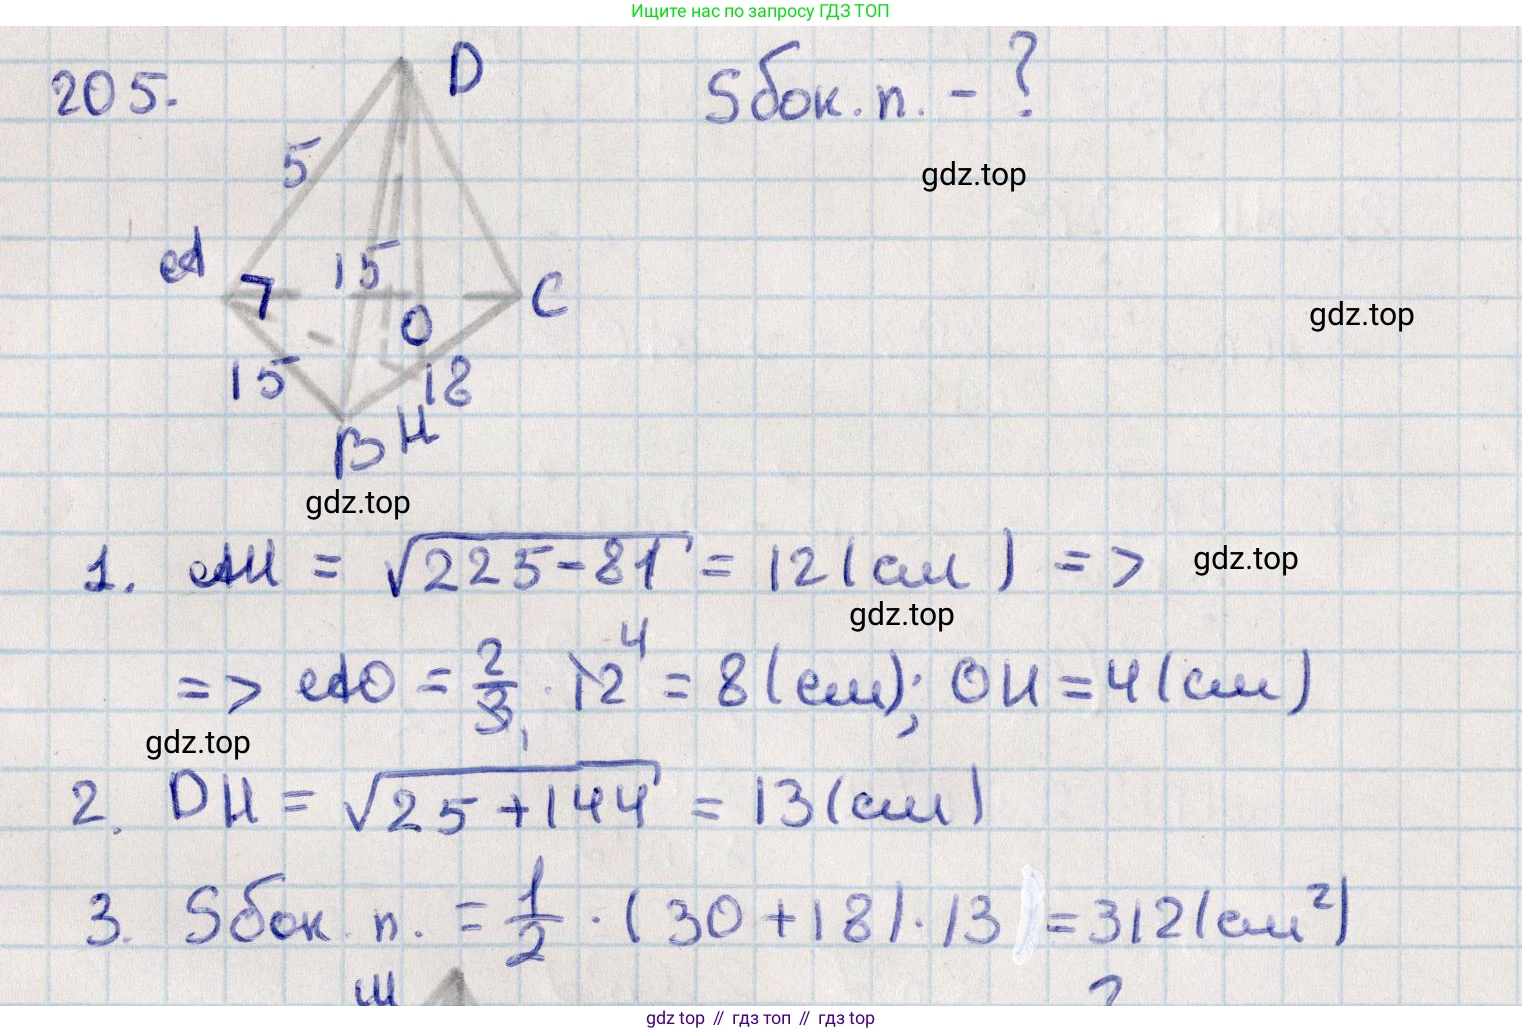 Ищите нас по запросу ГДЗ ТОП
205.
D
Sбок. п. - ?
5
gdz.top
A
7
15
C
O
gdz.top
15
18
B H
gdz.top
1. AH = √225-81 = 12(см) =>
gdz.top
gdz.top
=> AO = 2/3 · 12 4 = 8(см); OH = 4(см)
1
gdz.top
2. DH = √25+144 = 13(см)
3. Sбок. п. = 1/2 · (30+18)·13 = 312(см²)
gdz top // гдз топ // gdz top